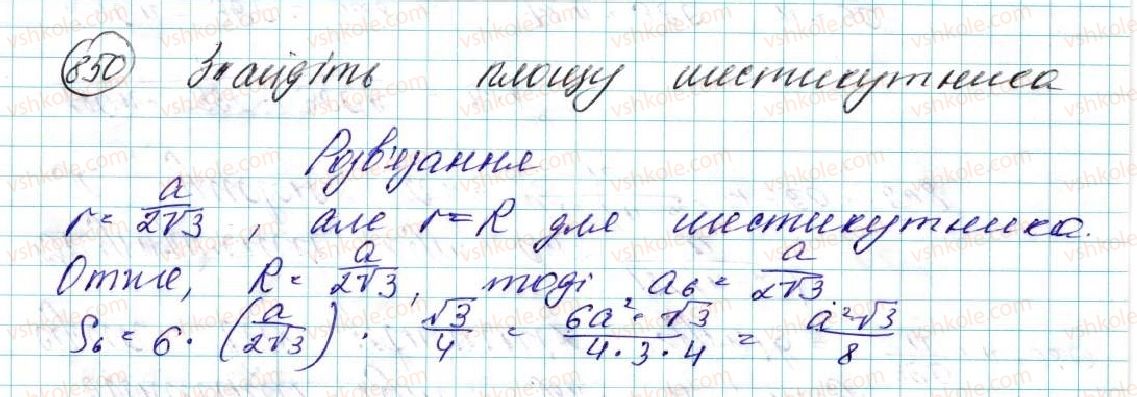 850 Знайдіть площу шестикутника
Розв'язання
r = a/(2√3), але r = R для шестикутника.
Отже, R = a/(2√3), тоді a₆ = a/(2√3).
S₆ = 6 · (a/(2√3)) · √3/4 = (6a² · √3)/(4 · 3 · 4) = (a²√3)/8